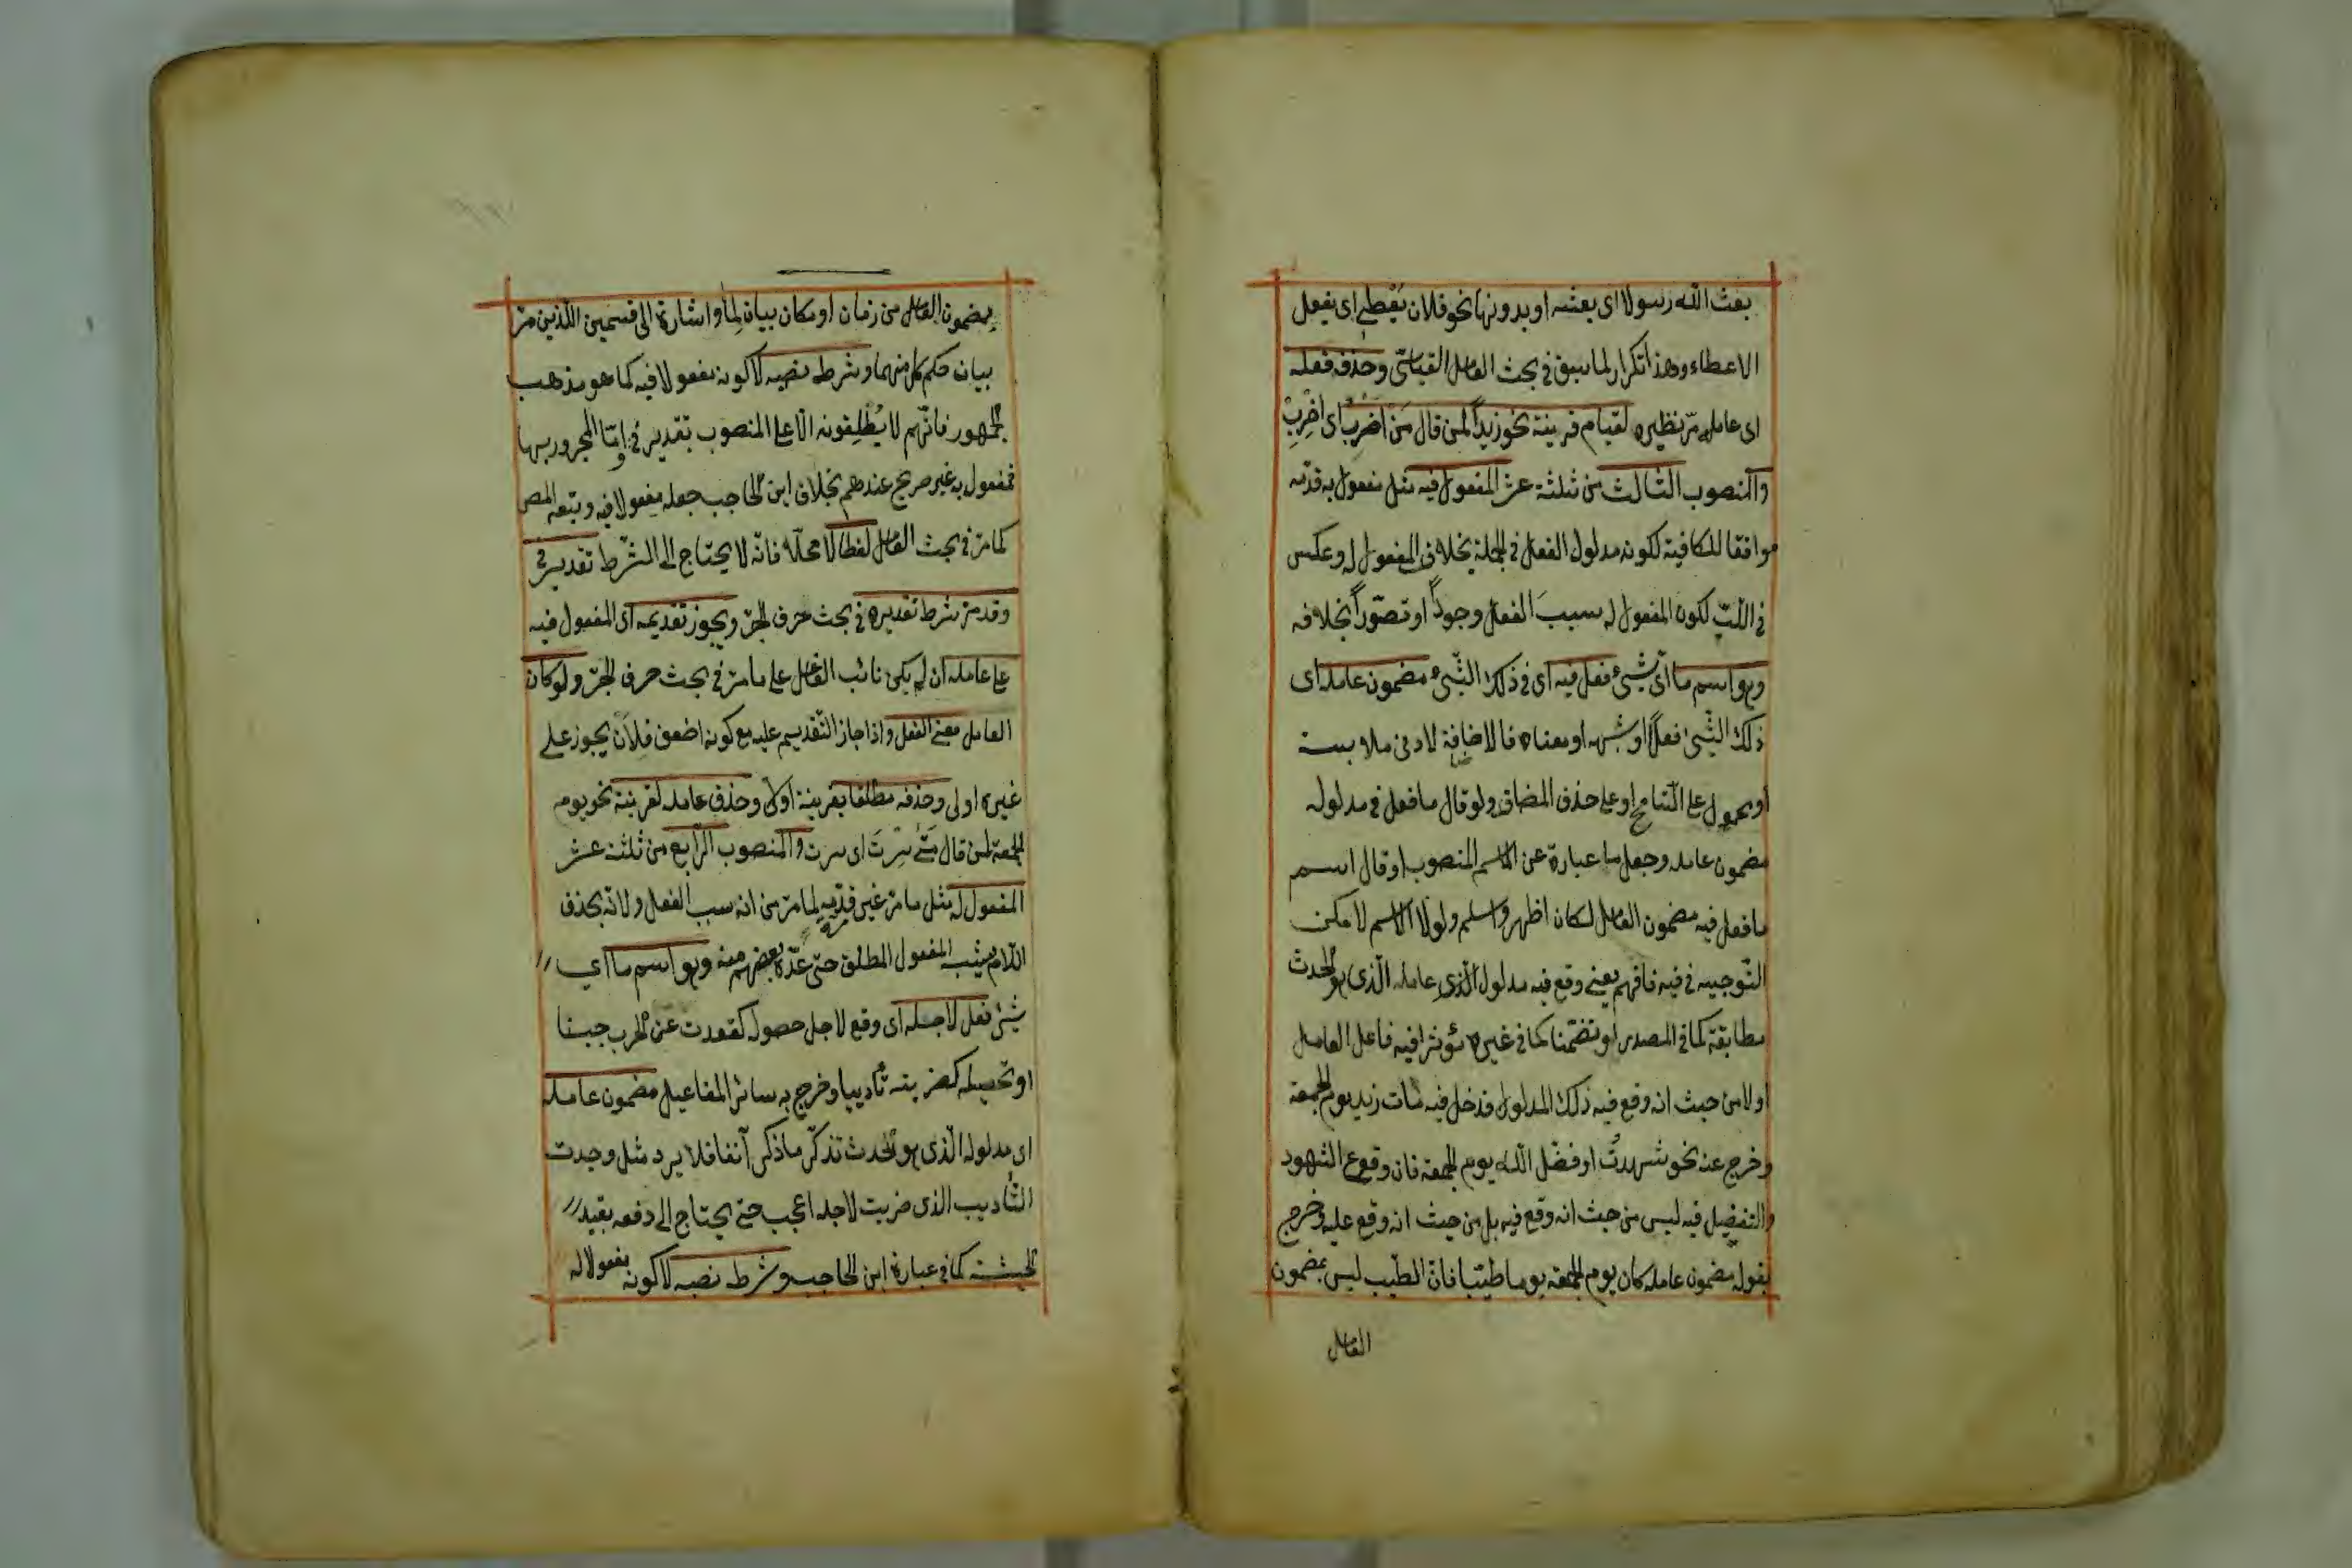 بعث الله رسولا اى بعثه او بدونها نحو فلان يعطى اى يفعل
الاعطاء وهذا تكرار لما سبق فى بحث العامل القياسى وحذف فعله
اى عامله مرّ نظيره لقيام قرينة نحو زيداً لمن قال مَنْ اَضْرِبُ اى اِضْرِبْ
والمنصوب الثالث من ثلثة عشر المفعول فيه مثل مفعول به قدّمه
موافقا للكافية لكونه مدلول الفعل فى الجملة بخلاف المفعول له وعكس
فى اللبّ لكون المفعول له سببَ الفعل وجوداً او تصوّراً بخلافه
وهو اسم ما اى شىء فعل فيه اى فى ذلك الشىء مضمون عامله اى
ذلك الشىء فعلاً او شبهه او معناه فالاضافة لادنى ملابسة
او محمول على التسامح او على حذف المضاف ولو قال ما فعل فى مدلوله
مضمون عامله وجعل ما عبارة عن الاسم المنصوب او قال اسم
ما فعل فيه مضمون العامل لكان اظهر واسلم ولولا الاسم لامكن
التوجيه فى فيه فافهم يعنى وقع فيه مدلول الذى عامله الذى هو الحدث
مطابقة كما فى المصدر او تضمّنا كما فى غيره مؤثرا فيه فاعل العامل
اولا من حيث انه وقع فيه ذلك المدلول فدخل فيه مات زيد يوم الجمعة
وخرج عنه نحو شهدتُ او فضّل الله يوم الجمعة فان وقوع الشهود
والتفضيل فيه ليس من حيث انه وقع فيه بل من حيث انه وقع عليه وخرج
بقوله مضمون عامله كان يوم الجمعة يوما طيّبا فانّ الطيب ليس بمضمون
العامل
بمضمون العامل من زمان او مكان بيان لما واشارة الى قسمين اللذين مرّ
بيان حكم كل منهما وشرط نصبه لا كونه مفعولا فيه كما هو مذهب
الجمهور فانّهم لا يُطْلِقونه الا على المنصوب بتقدير فى وامّا المجرور بها
فمفعول به غير صريح عندهم بخلاف ابن الحاجب جعله مفعولا فيه وتبعه المص
كما مرّ فى بحث العامل لفظا لا محلّا فانّه لا يحتاج الى الشرط تقدير فى
وقد مرّ شرط تقديره فى بحث حرف الجرّ ويجوز تقديمه اى المفعول فيه
على عامله ان لم يكن نائب الفاعل على ما مرّ فى بحث حرف الجرّ ولو كان
العامل معنى الفعل واذا جاز التقديم عليه مع كونه اضعف فلأن يجوز على
غيره اولى وحذفه مطلقا بقرينة اولا وحذف عامله لقرينة نحو يوم
الجمعة لمن قال مَتٰى سِرْتَ اى سرت والمنصوب الرّابع من ثلثة عشر
المفعول له مثل ما مرّ غير مرّة لما مرّ من انه سبب الفعل ولانّه بحذف
اللام يشبه المفعول المطلق حتى عدّه بعضهم منه وهو اسم ما اى
شىء فعل لاجله اى وقع لاجل حصوله كقعدت عن الحرب جبنا
او تحصيله كضربته تأديبا وخرج به سائر المفاعيل مضمون عامله
اى مدلوله الذى هو الحدث تذكّر ما ذكر آنفا فلا يرد مثل وجدت
التأديب الذى ضربت لاجله اعجب حتى يحتاج الى دفعه بقيد
الحيثية كما فى عبارة ابن الحاجب وشرط نصبه لا كونه مفعولا له